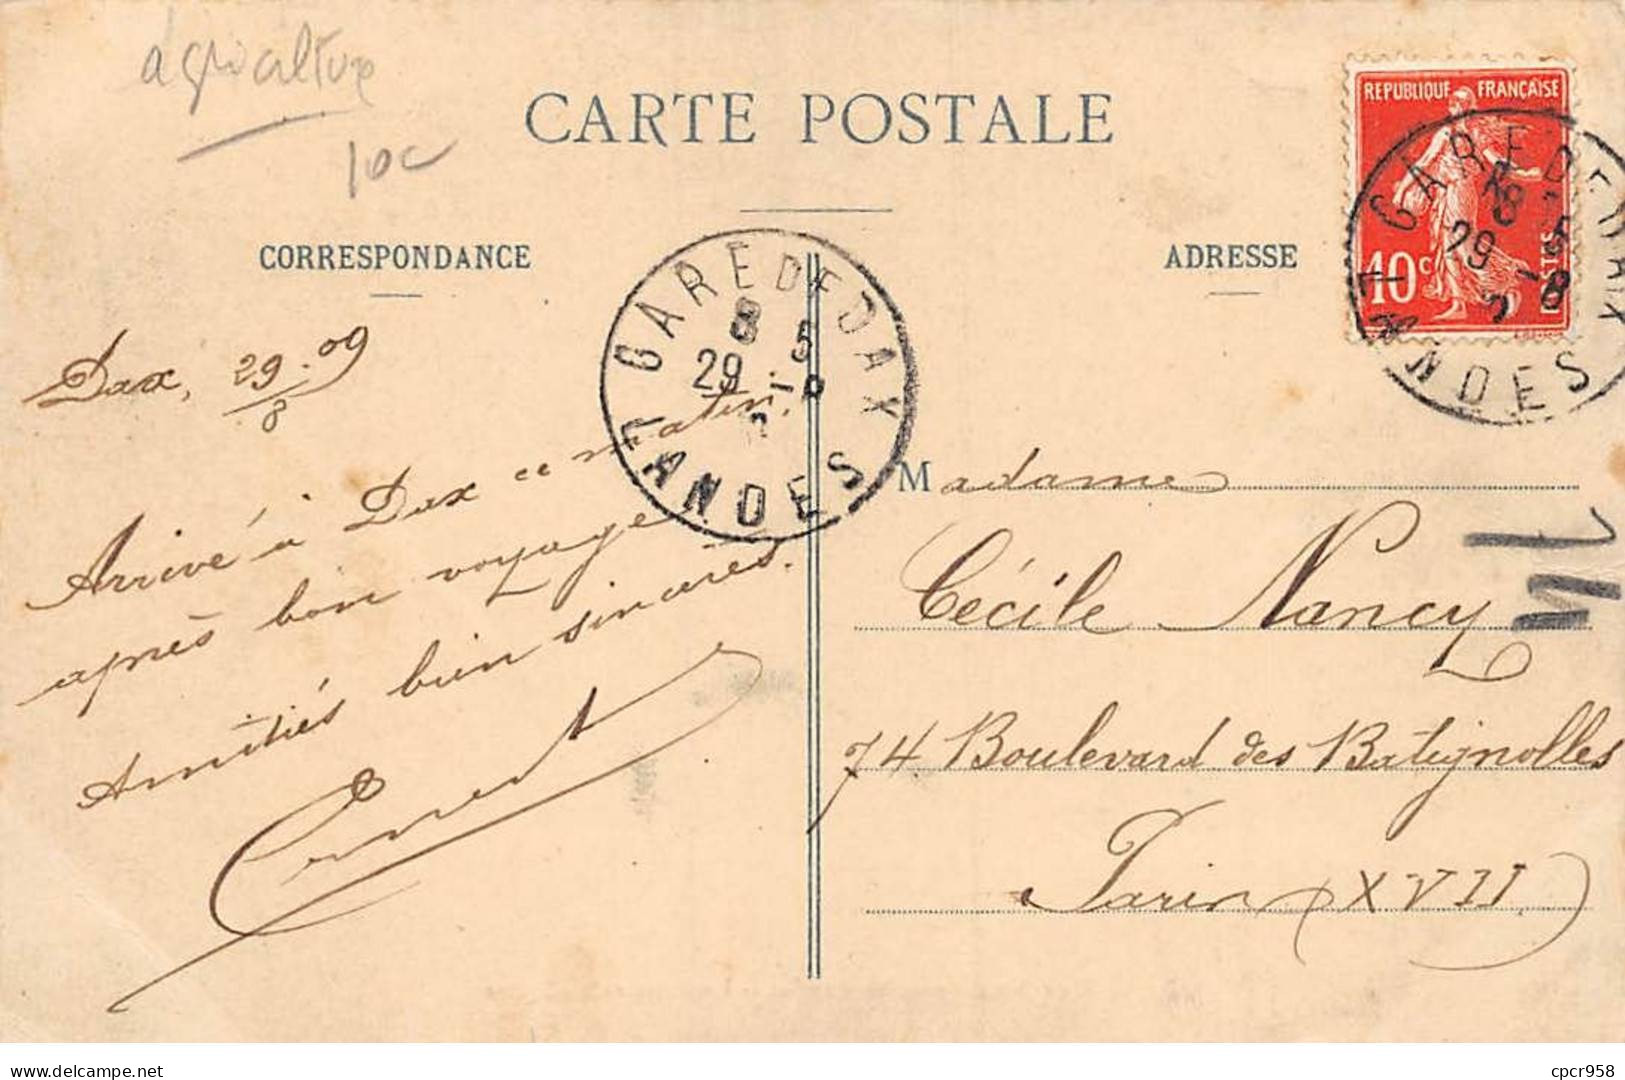 agriculture
10c
CARTE POSTALE
CORRESPONDANCE
ADRESSE
REPUBLIQUE FRANÇAISE
10c
POSTES
GARE DE DAX
LANDES
8 5
29 - 8
GARE DE DAX
LANDES
8 5
29 - 8
Dax, 29/8. 09
Arrivé à Dax ce matin.
après bon voyage
Amitiés bien sincères.
Madame
Cécile Nancy
74 Boulevard des Batignolles
Paris (XVII)
delcampe.net
cpcr958